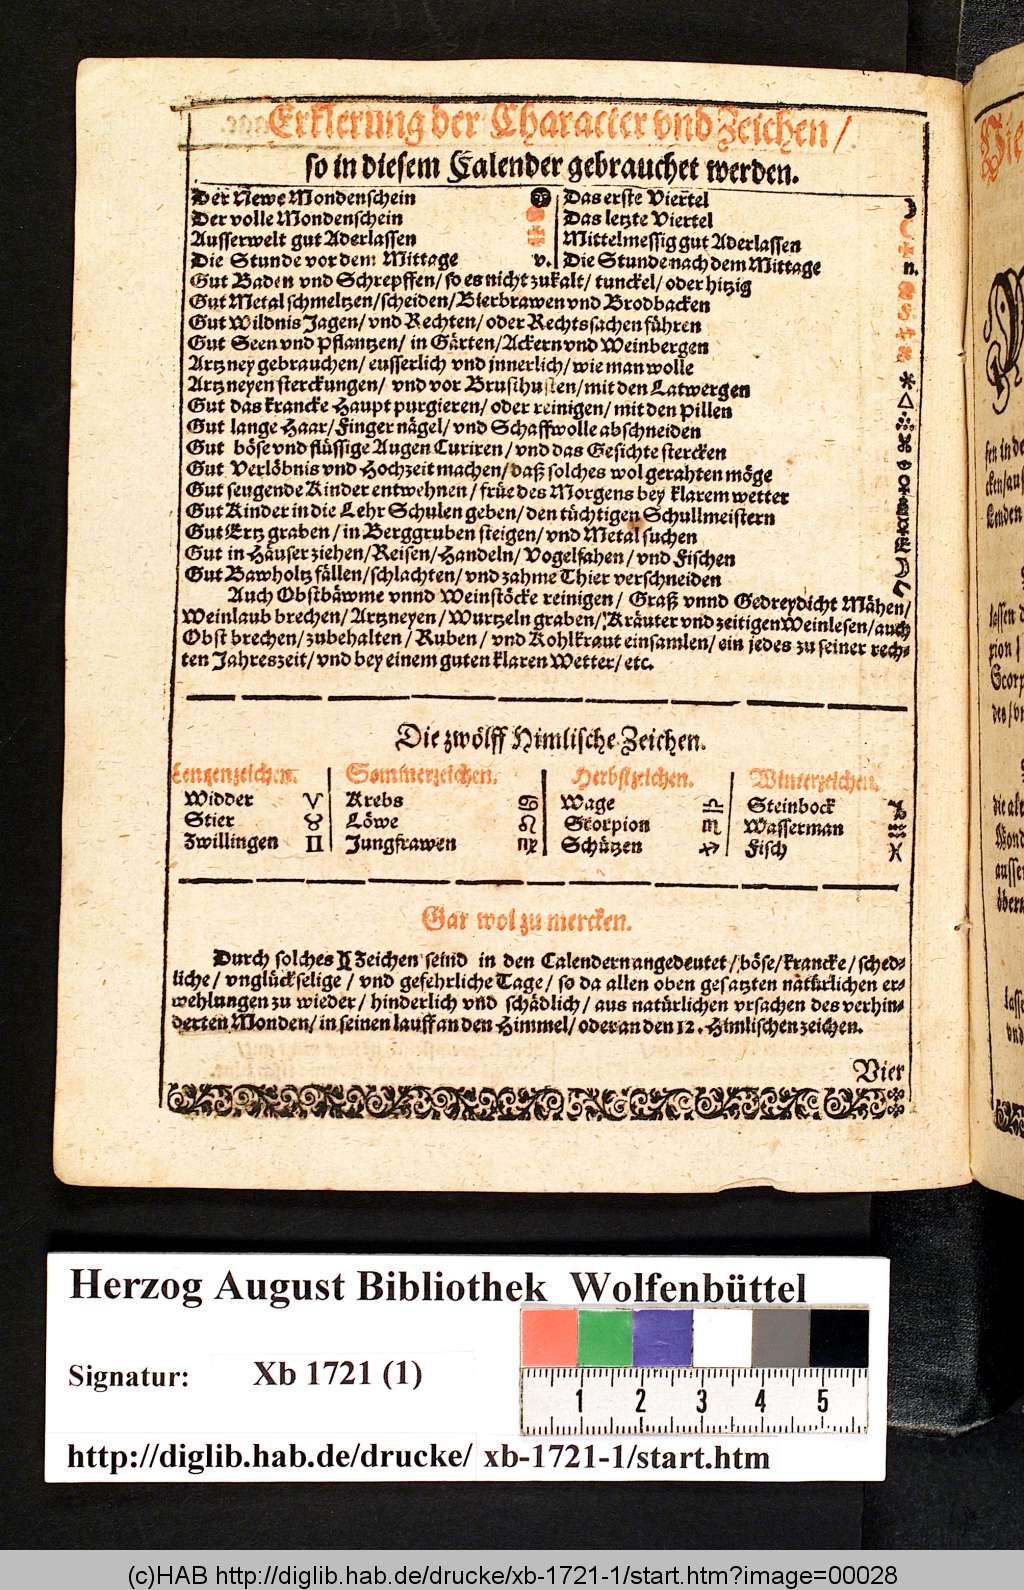 Erklerung der Character vnd Zeichen/
so in diesem Calender gebrauchet werden.
Der Newe Mondenschein
Der volle Mondenschein
Ausserwelt gut Aderlassen
Die Stunde vor dem Mittage v.
Das erste Viertel ☽
Das letzte Viertel ☾
Mittelmessig gut Aderlassen
Die Stunde nach dem Mittage n.
Gut Baden vnd Schrepffen/ so es nicht zu kalt/ tunckel/ oder hitzig
Gut Metal schmeltzen/scheiden/Bierbrawen vnd Brodbacken
Gut Wildnis Jagen/ vnd Rechten/ oder Rechtssachen führen
Gut Seen vnd Pflantzen/ in Gärten/Ackern vnd Weinbergen
Artzney gebrauchen/ eusserlich vnd innerlich/ wie man wolle
Artzneyen sterckungen/ vnd vor Brusthusten/mit den Latwergen ✶
Gut das krancke Haupt purgieren/ oder reinigen/ mit den Pillen △
Gut lange Haar/ Finger nägel/ vnd Schaffwolle abschneiden
Gut böse vnd flüssige Augen Curiren/ vnd das Gesichte stercken
Gut Verlöbnis vnd Hochzeit machen/daß solches wol gerahten möge
Gut seugende Kinder entwehnen / früe des Morgens bey klarem wetter
Gut Kinder in die Lehr Schulen geben/ den tüchtigen Schullmeistern
Gut Ertz graben/ in Berggruben steigen/ vnd Metal suchen
Gut in Häuser ziehen/Reisen/Handeln/ Vogelfahen/ vnd Fischen
Gut Bawholtz fällen/schlachten/ vnd zahme Thier verschneiden
Auch Obstbäwme vnnd Weinstöcke reinigen/ Graß vnnd Gedreydicht Mähen/
Weinlaub brechen/ Artzneyen/ Wurtzeln graben/ Kräuter vnd zeitigen Weinlesen/ auch
Obst brechen/ zubehalten/ Ruben/ vnd Kohlkraut einsamlen/ ein jedes zu seiner rech-
ten Jahreszeit/ vnd bey einem guten klaren Wetter/ etc.
Die zwölff Himlische Zeichen.
Lentzenzeichen.
Widder ♈
Stier ♉
Zwillingen ♊
Sommerzeichen.
Krebs ♋
Löwe ♌
Jungfrawen ♍
Herbstzeichen.
Wage ♎
Skorpion ♏
Schützen ♐
Winterzeichen.
Steinbock ♑
Wasserman ♒
Fisch ♓
Gar wol zu mercken.
Durch solches Zeichen seind in den Calendern angedeutet/ böse/ krancke/ sched-
liche/ vnglückselige/ vnd gefehrliche Tage/ so da allen oben gesatzten natürlichen er-
wehlungen zu wieder/ hinderlich vnd schädlich/ aus natürlichen vrsachen des verhin-
derten Monden/ in seinen lauff an den Himmel/ oder an den 12. Himlischen zeichen.
Vier
Herzog August Bibliothek Wolfenbüttel
Signatur: Xb 1721 (1)
1 2 3 4 5
http://diglib.hab.de/drucke/ xb-1721-1/start.htm
(c)HAB http://diglib.hab.de/drucke/xb-1721-1/start.htm?image=00028